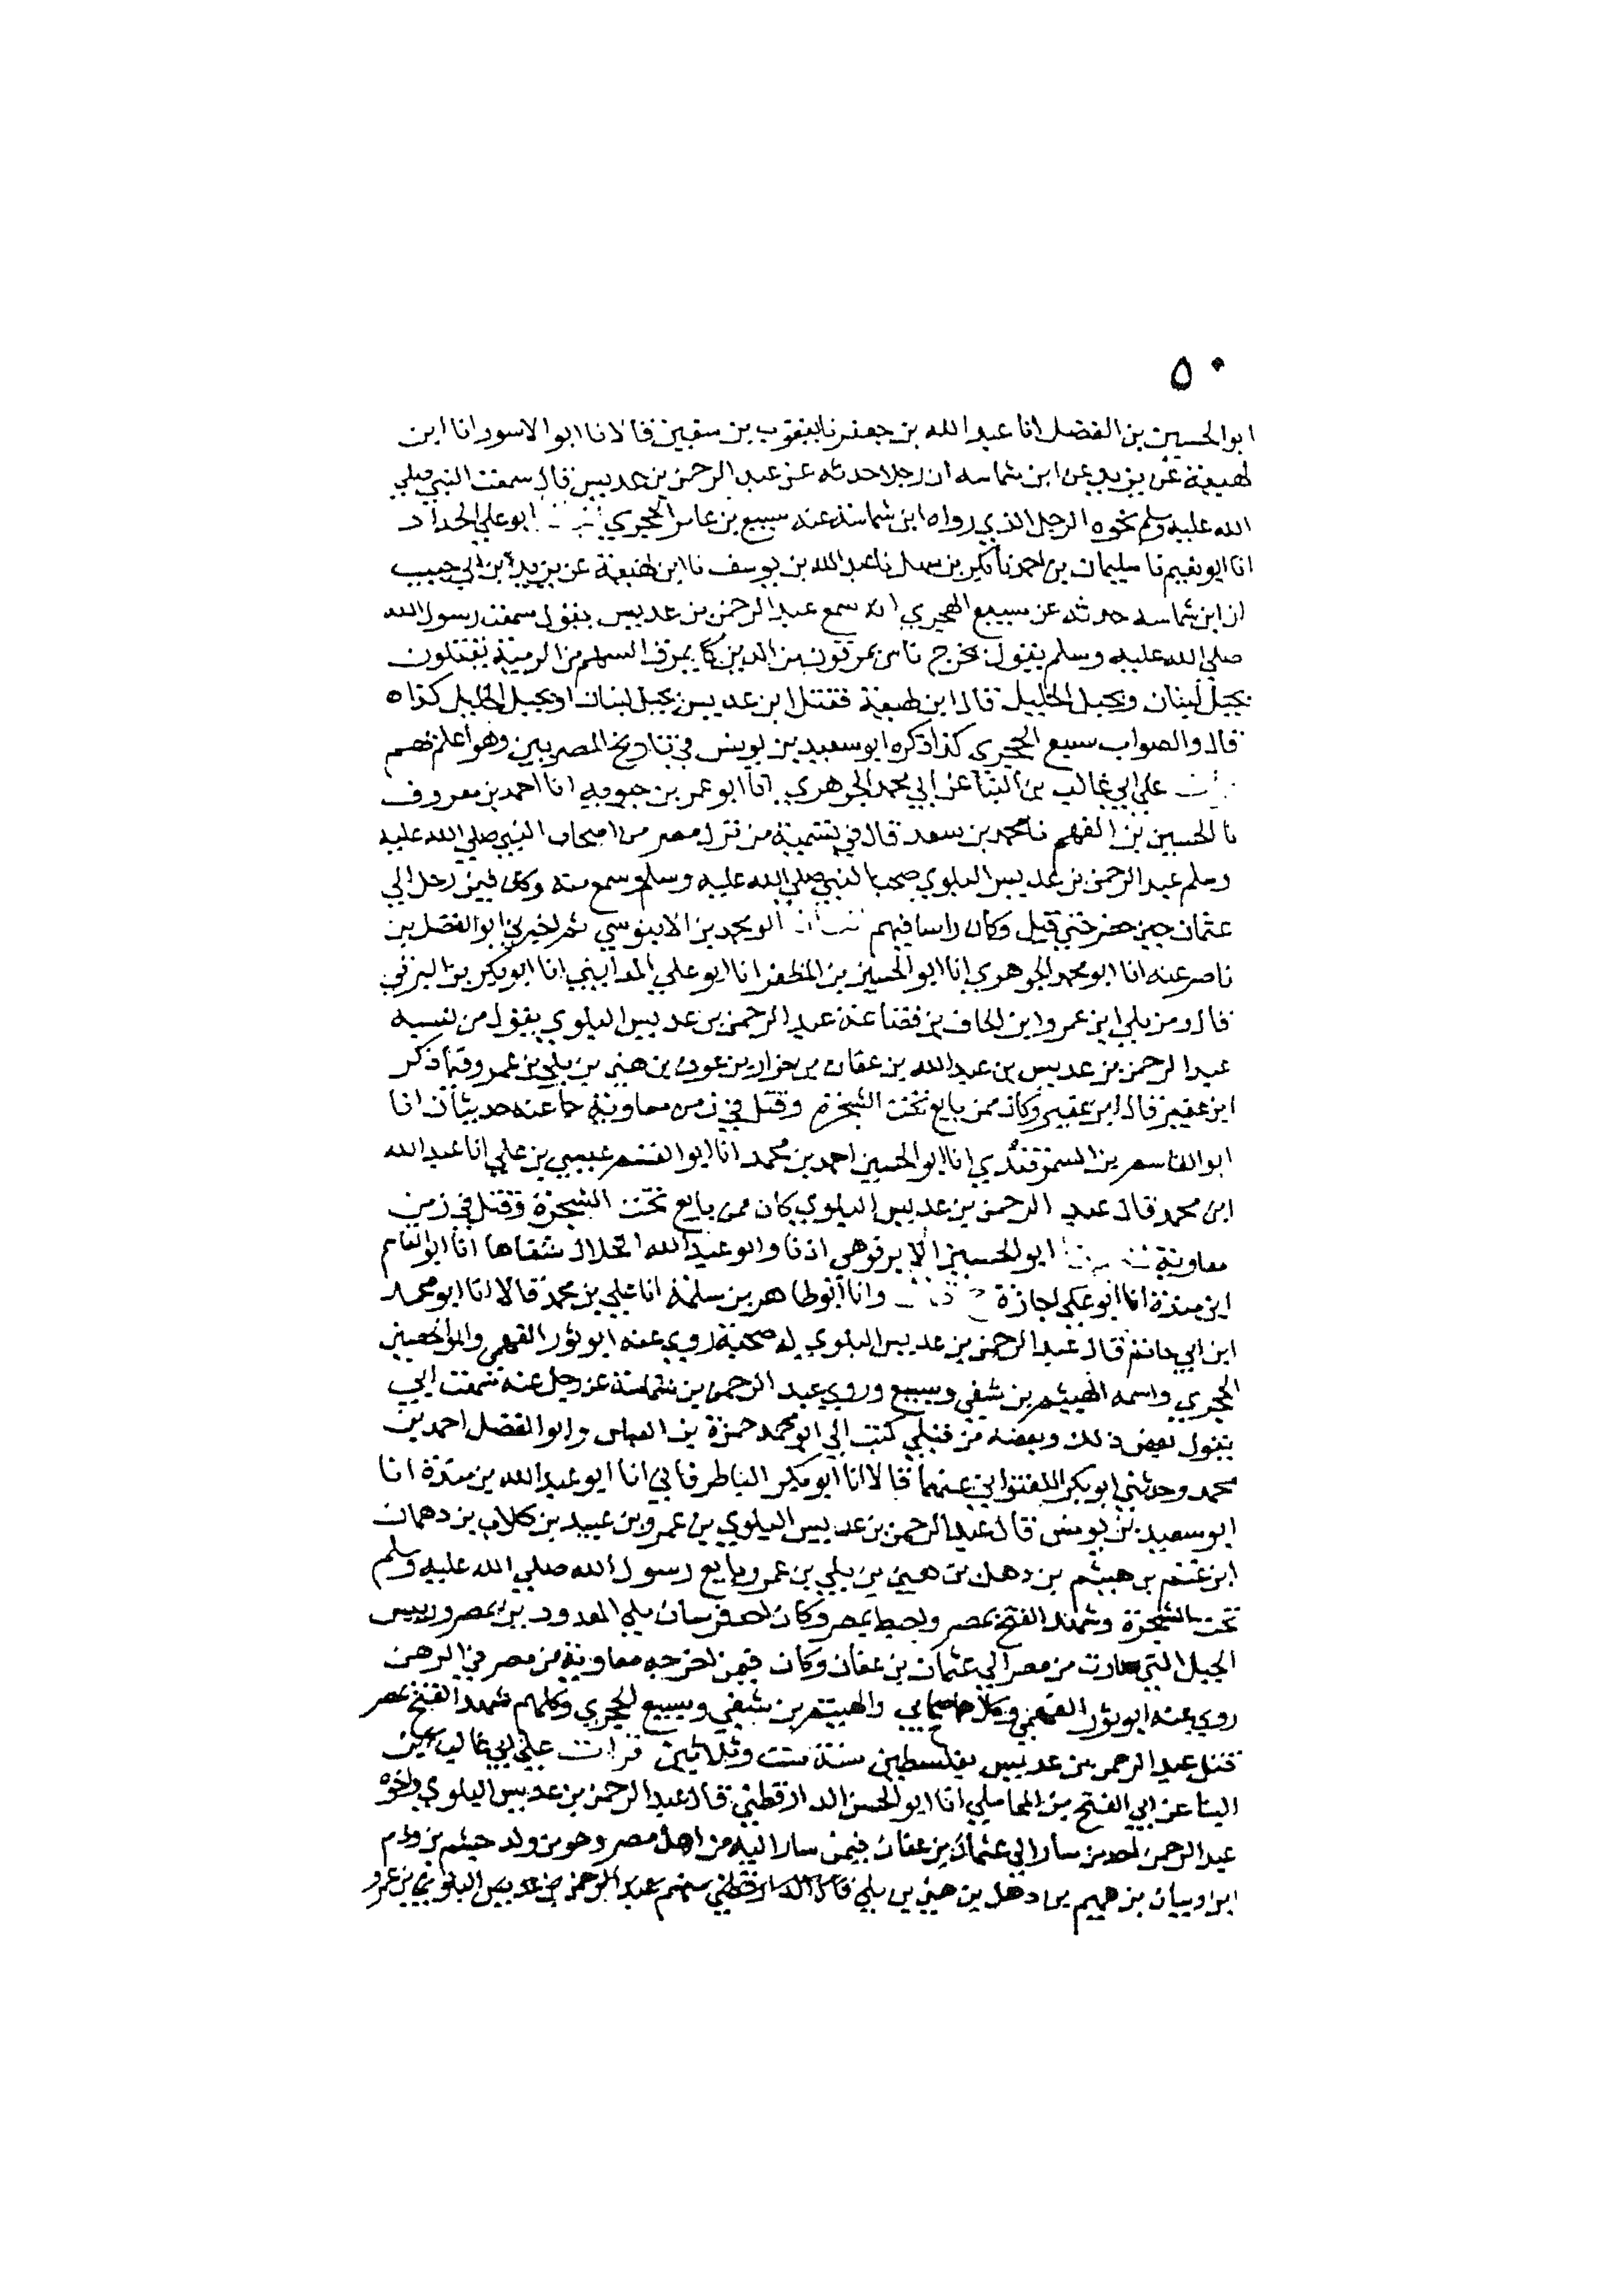 ٥٠
ابو الحسين بن الفضل انا عبد الله بن جعفر نا يعقوب بن سفين قالانا ابو الاسود انا ابن
لهيعة عن يزيد عن ابن شماسه ان رجلا حدثه عن عبد الرحمن بن عديس قال سمعت النبي صلي
الله عليه وسلم نحوه الرجل الذي رواه ابن شماسة عنه سبيع بن عامر الحجري ابو علي الحداد
انا ابو نعيم نا سليمان بن احمد نا بكر بن سهل نا عبد الله بن يوسف نا ابن لهيعة عن يزيد ابن ابي حبيب
ان ابن شماسه حدثه عن سبيع الهجري انه سمع عبد الرحمن بن عديس يقول سمعت رسول الله
صلي الله عليه وسلم يقول يخرج ناس يمرقون من الدين كما يمرق السهم من الرمية يقتلون
بجبل لبنان وبجبل الخليل قال ابن لهيعة فقتل ابن عديس بجبل لبنان او بجبل الخليل كذا ه
قال والصواب سبيع الحجري كذا ذكره ابو سعيد بن يونس في تاريخ المصريين وهو اعلم بهم
علي ابي غالب بن البنا عن ابي محمد الجوهري انا ابو عمر بن حيويه انا احمد بن معروف
نا الحسين بن الفهم نا محمد بن سعد قال في تسمية من نزل مصر من اصحاب النبي صلي الله عليه
وسلم عبد الرحمن بن عديس البلوي صحب النبي صلي الله عليه وسلم وسمع منه وكان فيمن رحل الي
عثمان حين حصر حتي قتل وكان راسا فيهم ابو محمد بن الابنوسي ثم اخبرني ابو الفضل بن
ناصر عنه انا ابو محمد الجوهري انا ابو الحسين بن المظفر انا ابو علي المدايني انا ابو بكر بن البرقي
قال ومن بلي ابن عمرو ابن الحاف بن قضاعة عبد الرحمن بن عديس البلوي يقول من نسبه
عبد الرحمن بن عديس بن عبد الله بن عفان بن حزار بن عوف بن هني بن بلي بن عمرو فيما ذكر
ابن عفير قال ابن عفير وكان ممن بايع تحت الشجرة وقتل في زمن معاوية جا عنه حديثان انا
ابو القاسم بن السمرقندي انا ابو الحسين احمد بن محمد انا ابو القسم عيسي بن علي انا عبد الله
ابن محمد قال عبد الرحمن بن عديس البلوي كان ممن بايع تحت الشجرة وقتل في زمن
معاوية ابو الحسين الابرقوهي اذنا وابو عبد الله الخلال شفاها انا ابو القاسم
ابن مندة انا ابو علي اجازة وانا ابو طاهر بن سلمة انا علي بن محمد قالا انا ابو محمد
ابن ابي حاتم قال عبد الرحمن بن عديس البلوي له صحبة روي عنه ابو ثور الفهمي وابو الحصين
الحجري واسمه الهيثم بن شفي وسبيع وروي عبد الرحمن بن شماسة عن رجل عنه سمعت ابي
يقول بعض ذلك وبعضه من قبلي كتب الي ابو محمد حمزة بن العباس وابو الفضل احمد بن
محمد وحدثني ابو بكر اللفتواني عنهما قالا انا ابو بكر الباطرقاني انا ابو عبد الله بن مندة انا
ابو سعيد بن يونس قال عبد الرحمن بن عديس البلوي بن عمرو بن عبيد بن كلاب بن دهمان
ابن غنم بن هميم بن دهل بن هني بن بلي بن عمرو بايع رسول الله صلي الله عليه وسلم
تحت الشجرة وشهد الفتح بمصر واختط بمصر وكان من فرسان بلي المعدود بن بمصر ورييس
الخيل التي صارت من مصر الي عثمان بن عفان وكان فيمن اخرجه معاوية من مصر في الرهن
روي عنه ابو ثور الفهمي والهيثم بن شفي وسبيع الحجري وكلهم شهد الفتح بمصر
قتل عبد الرحمن بن عديس بفلسطين سنة ست وثلاثين قرات علي ابي غالب بن
البنا عن ابي الفتح بن المحاملي انا ابو الحسن الدارقطني قال عبد الرحمن بن عديس البلوي واخوه
عبد الرحمن احد من سار الي عثمان بن عفان فيمن سار اليه من اهل مصر وهو من ولد حيثم بن ودم
ابن وبيان بن هميم بن دهل بن هني بن بلي قال الدارقطني منهم عبد الرحمن بن عديس البلوي بن عمرو